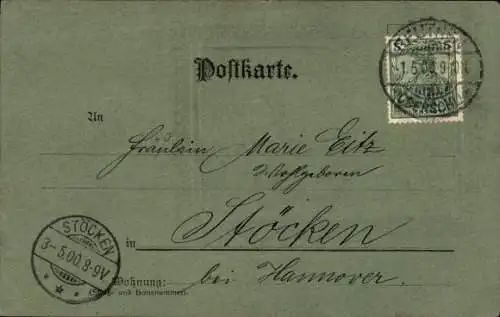 Postkarte.
1.5.00.9
(OBERSCHL
An
Fräulein Marie Eitz
Wohlgeboren
in Stöcken
bei Hannover.
Wohnung:
(Straße und Hausnummer)
STÖCKEN
3-5.00.8-9V